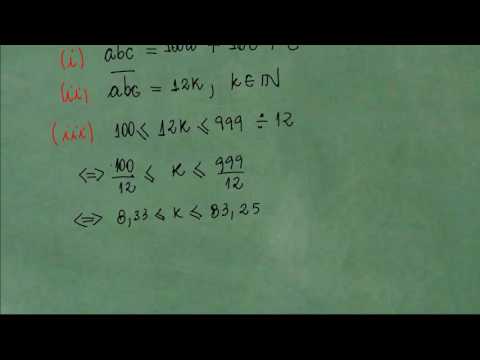 (i) abc = 100a + 10b + c
(ii) abc = 12k, k ∈ IN
(iii) 100 ≤ 12k ≤ 999 ÷ 12
⇔ 100/12 ≤ k ≤ 999/12
⇔ 8,33 ≤ k ≤ 83,25